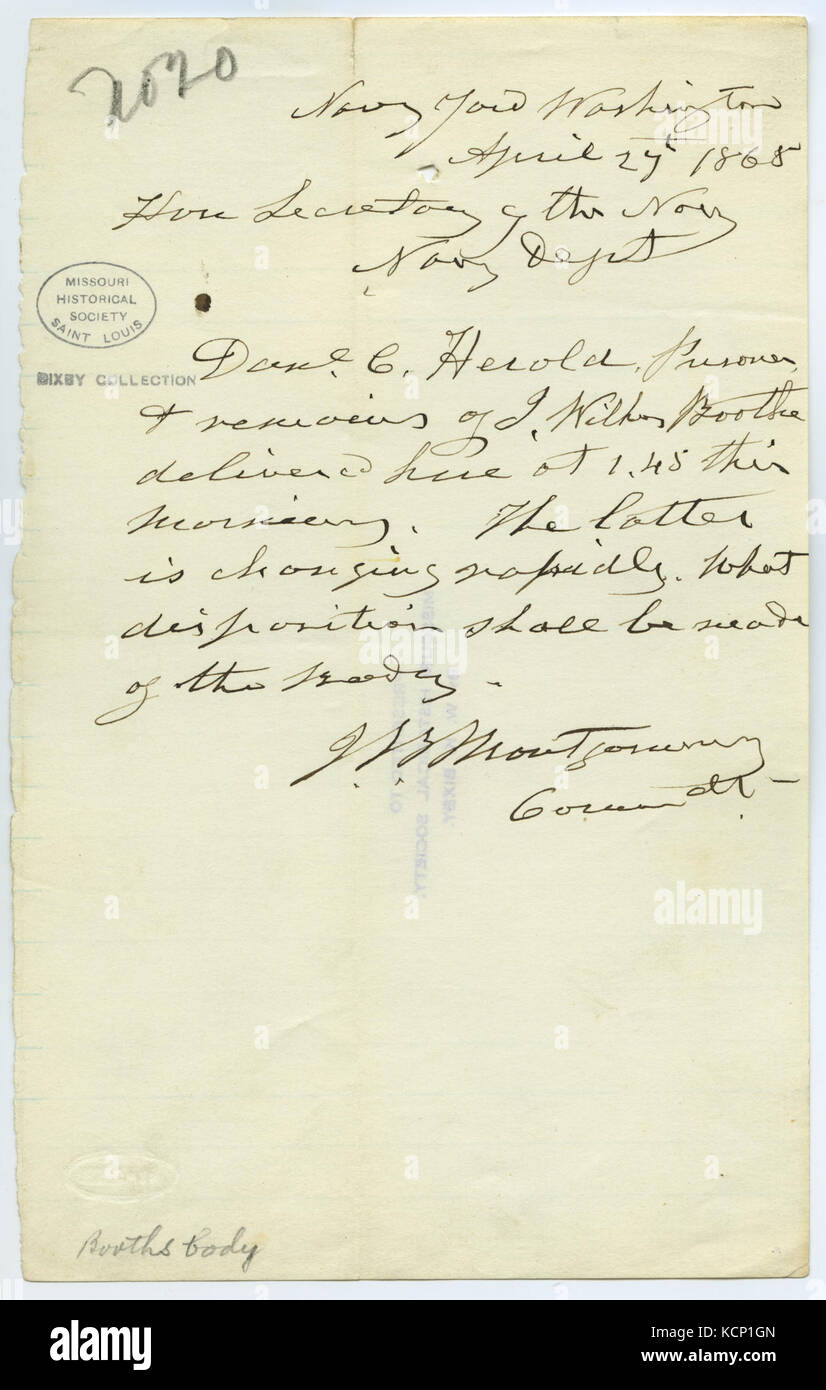 2020
Navy Yard Washington
April 27th 1865
Hon Secretary of the Navy
Navy Dept
MISSOURI
HISTORICAL
SOCIETY
SAINT LOUIS
BIXBY COLLECTION
Danl. C. Herold, Prisoner,
& remains of J. Wilkes Boothe
delivered here at 1.45 this
morning. The latter
is changing rapidly. What
disposition shall be made
of the Body.
J. B. Montgomery
Comdt
W. BIXBY.
HISTORICAL SOCIETY.
TO
Booths body
a alamy
alamy
Image ID: KCP1GN
www.alamy.com